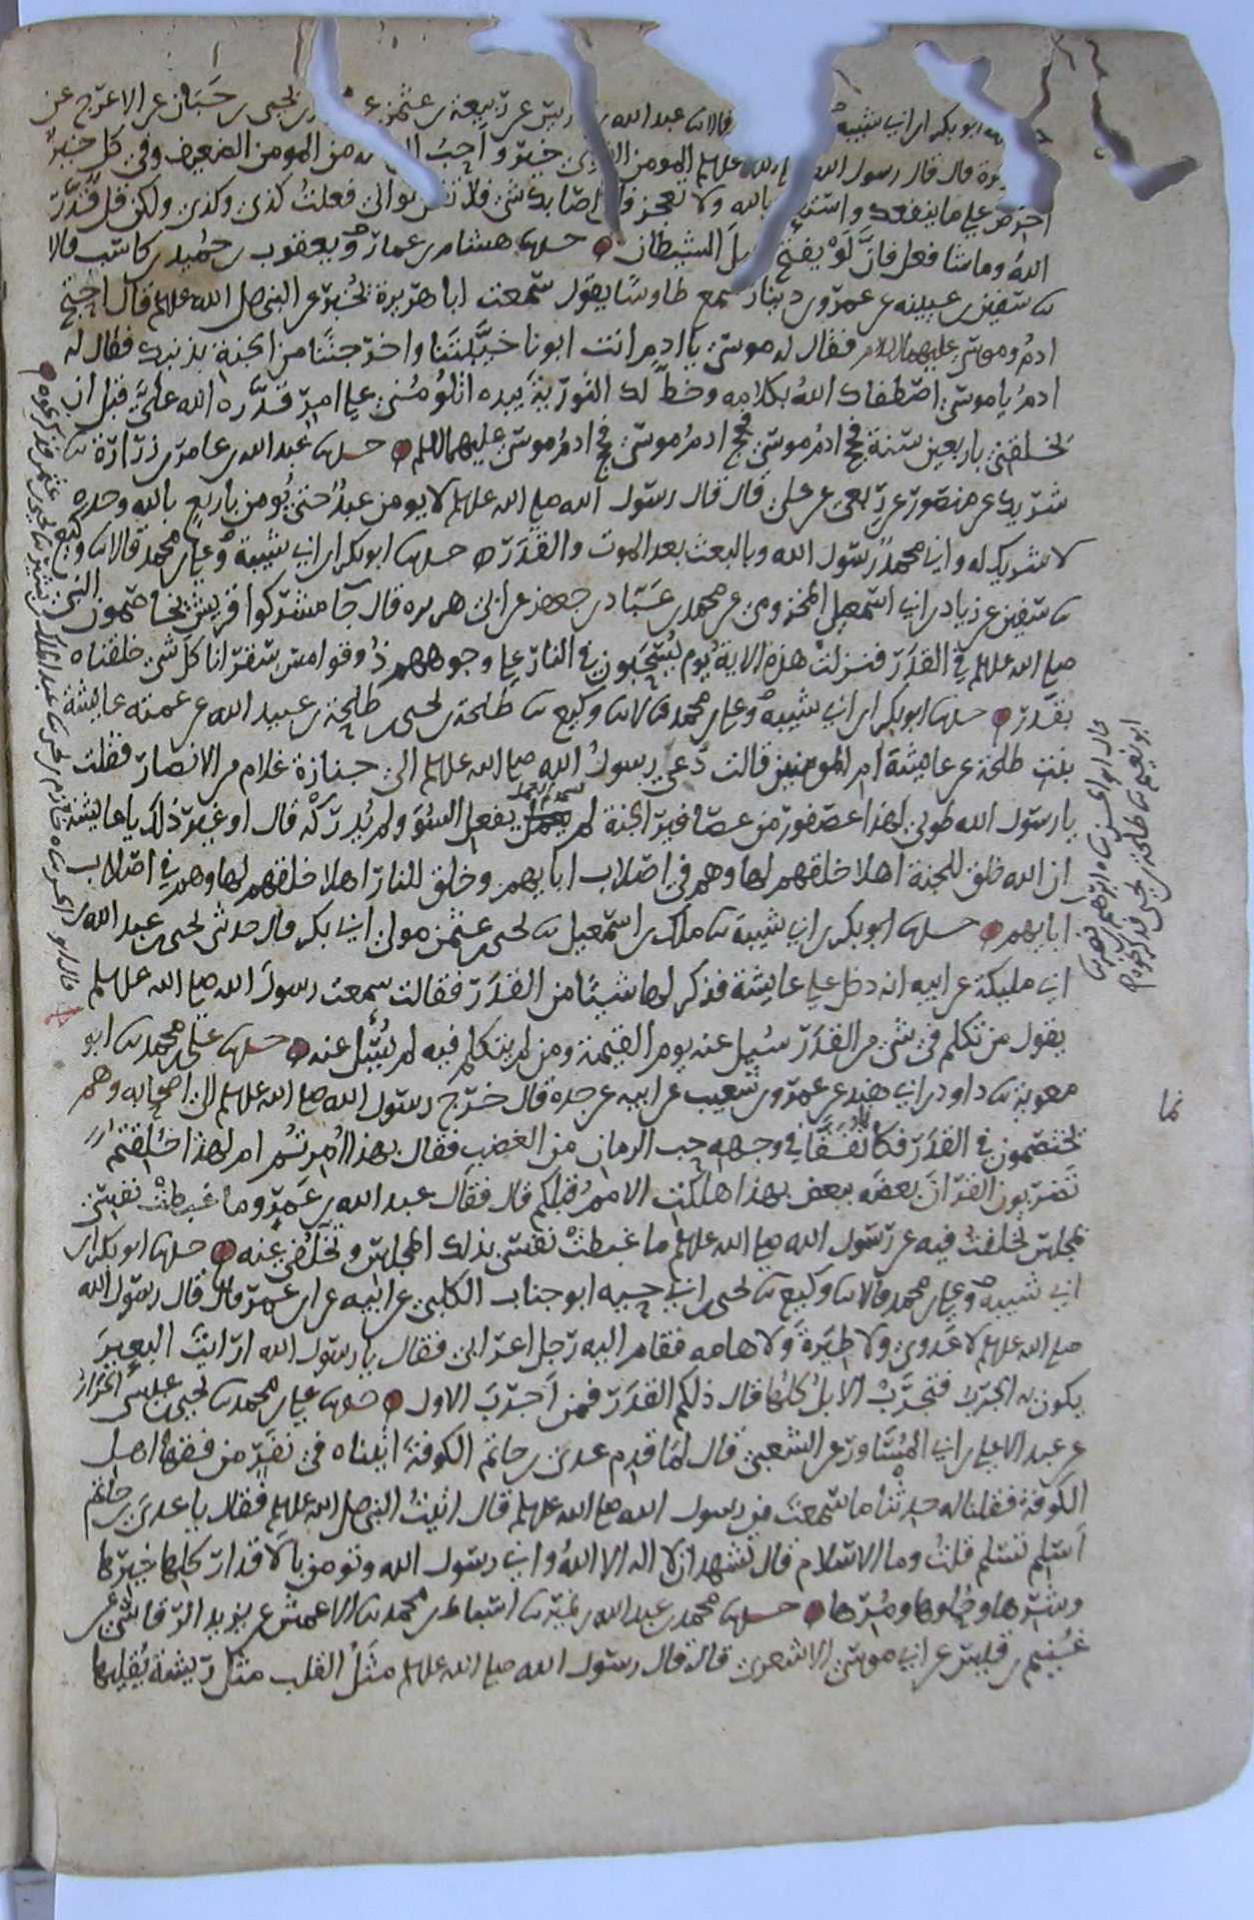 ابو بكر ابن ابي شيبة قالا نا عبد الله بن ادريس عن ربيعة بن عثمن عن محمد بن يحيى بن حَبّان عن الاعرج عن
هريرة قال قال رسول الله صلى الله عليه وسلم المومن القوي خير واَحبّ الى الله من المومن الضعيف وفي كل خيرٌ
احرص على ما ينفعك واستعن بالله ولا تعجز فان اصابك شي فلا تقل لو اني فعلتُ كذى وكذى ولكن قل قدّر
اللهُ وما شا فعل فانّ لَوْ يفتح عمل الشيطان حدثنا هشام بن عمار ويعقوب بن حُميد بن كاسب قالا
نا سفين بن عيينه عن عمرو بن دينار سمع طاوسًا يقول سمعت ابا هريرة يُخبر عن النبي صلى الله عليه وسلم قال احتج
ادمُ وموسى عليهما السلام فقال له موسى يا ادم انت ابونا خيّبتنا واخرجتنا من الجنة بذنبك فقال له
ادمُ يا موسى اصطفاك اللهُ بكلامه وخطّ لك التورية بيده اتلُومُني على امر قدّره الله عليّ قبل ان
يخلقني باربعين سنة فحج ادمُ موسى فحج ادمُ موسى فحج ادمُ موسى عليهما السلم حدثنا عبد الله بن عامر بن زرارة نا
شريك عن منصور عن ربعي عن علي قال قال رسول الله صلى الله عليه وسلم لا يومن عبدٌ حتى يُومن باربع بالله وحده
لا شريك له واني محمدٌ رسول الله وبالبعث بعد الموت والقدَر حدثنا ابو بكر ابن ابي شيبة وعلي بن محمد قالا نا وكيع
نا سفين عن زياد بن اسمعيل المخزومي عن محمد بن عَبّاد بن جعفر عن ابي هريره قال جا مشركوا قريش يخاصمون النبي
صلى الله عليه وسلم في القدَر فنزلتْ هذه الاية يوم يُسْحبون في النار على وجوههم ذُوقوا مسّ سقر انا كلّ شي خلقناه
بقَدر حدثنا ابو بكر ابن ابي شيبه وعلي بن محمد قالا نا وكيع نا طلحة بن يحيى بن طلحة بن عبيد الله عن عمته عايشة
بنت طلحة عن عايشة ام المومنين قالت دُعي رسولُ الله صلى الله عليه وسلم الى جنازة غلام من الانصار فقلت
يا رسول الله طوبى لهذا عصفور من عصافير الجنة لم يعمل السُوَ ولم يُدركْه قال او غير ذلك يا عايشة
ان الله خلق للجنة اهلا خلقهم لها وهم في اصلاب ابايهم وخلق للنار اهلا خلقهم لها وهم في اصلاب
ابايهم حدثنا ابو بكر بن ابي شيبة نا ملك بن اسمعيل نا يحيى بن عثمن مولى ابي بكر قال حدثني يحيى بن عبد الله بن
ابي مليكة عن ابيه انه دخل على عايشة فذكر لها شيًا من القدَر فقالت سمعت رسولَ الله صلى الله عليه وسلم
يقول من تكلم في شي من القدر سُيل عنه يوم القيمة ومن لم يتكلم فيه لم يُسْيل عنه حدثنا علي بن محمد نا ابو
معوية نا داود بن ابي هند عن عمرو بن شعيب عن ابيه عن جده قال خرج رسول الله صلى الله عليه وسلم الى اصحابه وهم
يختصمون في القدَر فكانما تُفقأ في وجهه حب الرمان من الغضب فقال بهذا اُمِرتُم ام لهذا خُلِقتُم
تضربون القرانَ بعضَه ببعض بهذا هلكت الاممُ قبلكم قال فقال عبد الله بن عمرو وما غبطتُ نفسي
بمجلسٍ تخلفتُ فيه عن رسول الله صلى الله عليه وسلم ما غبطتْ نفسي بذلك المجلس وتخلُّفي عنه حدثنا ابو بكر ابن
ابي شيبه وعلي بن محمد قالا نا وكيع نا يحيى بن ابي حيه ابو جناب الكلبي عن ابيه عن ابن عمر قال قال رسول الله
صلى الله عليه وسلم لا عَدوى ولا طِيَرةَ ولا هامه فقام اليه رجل اعرابي فقال يا رسول الله ارايتَ البعيرَ
يكون به الجَرَب فتجرَبْ الابلُ كلُها قال ذلكم القدَر فمن اَجرَبَ الاول حدثنا علي بن محمد نا يحيى بن عيسى الخزاز
عن عبد الاعلى بن ابي المُسَاور عن الشعبي قال لما قدم عدي بن حاتم الكوفة اتيناه في نفَرٍ من فقها اهل
الكوفة فقلنا له حدِثْنا ما سمعتَ من رسول الله صلى الله عليه وسلم قال اتيتُ النبي صلى الله عليه وسلم فقال يا عدي بن حاتم
اَسلم تسلم قلتُ وما الاسلام قال تشهد ان لا اله الا اللهُ واني رسول الله وتومن بالاقدار كلها خيرها
وشرها وحُلوها ومُرّها حدثنا محمد بن عبد الله بن نمير نا اسباط بن محمد نا الاعمش عن يزيد الرقاشي عن
غُنيم بن قيس عن ابي موسى الاشعري قال قال رسول الله صلى الله عليه وسلم مثَلُ القلب مثل ريشة يُقلبها
قال ابو الحسن نا ابراهيم بن نصر نا
ابو نعيم نا طلحة بن يحيى فذكر نحوه